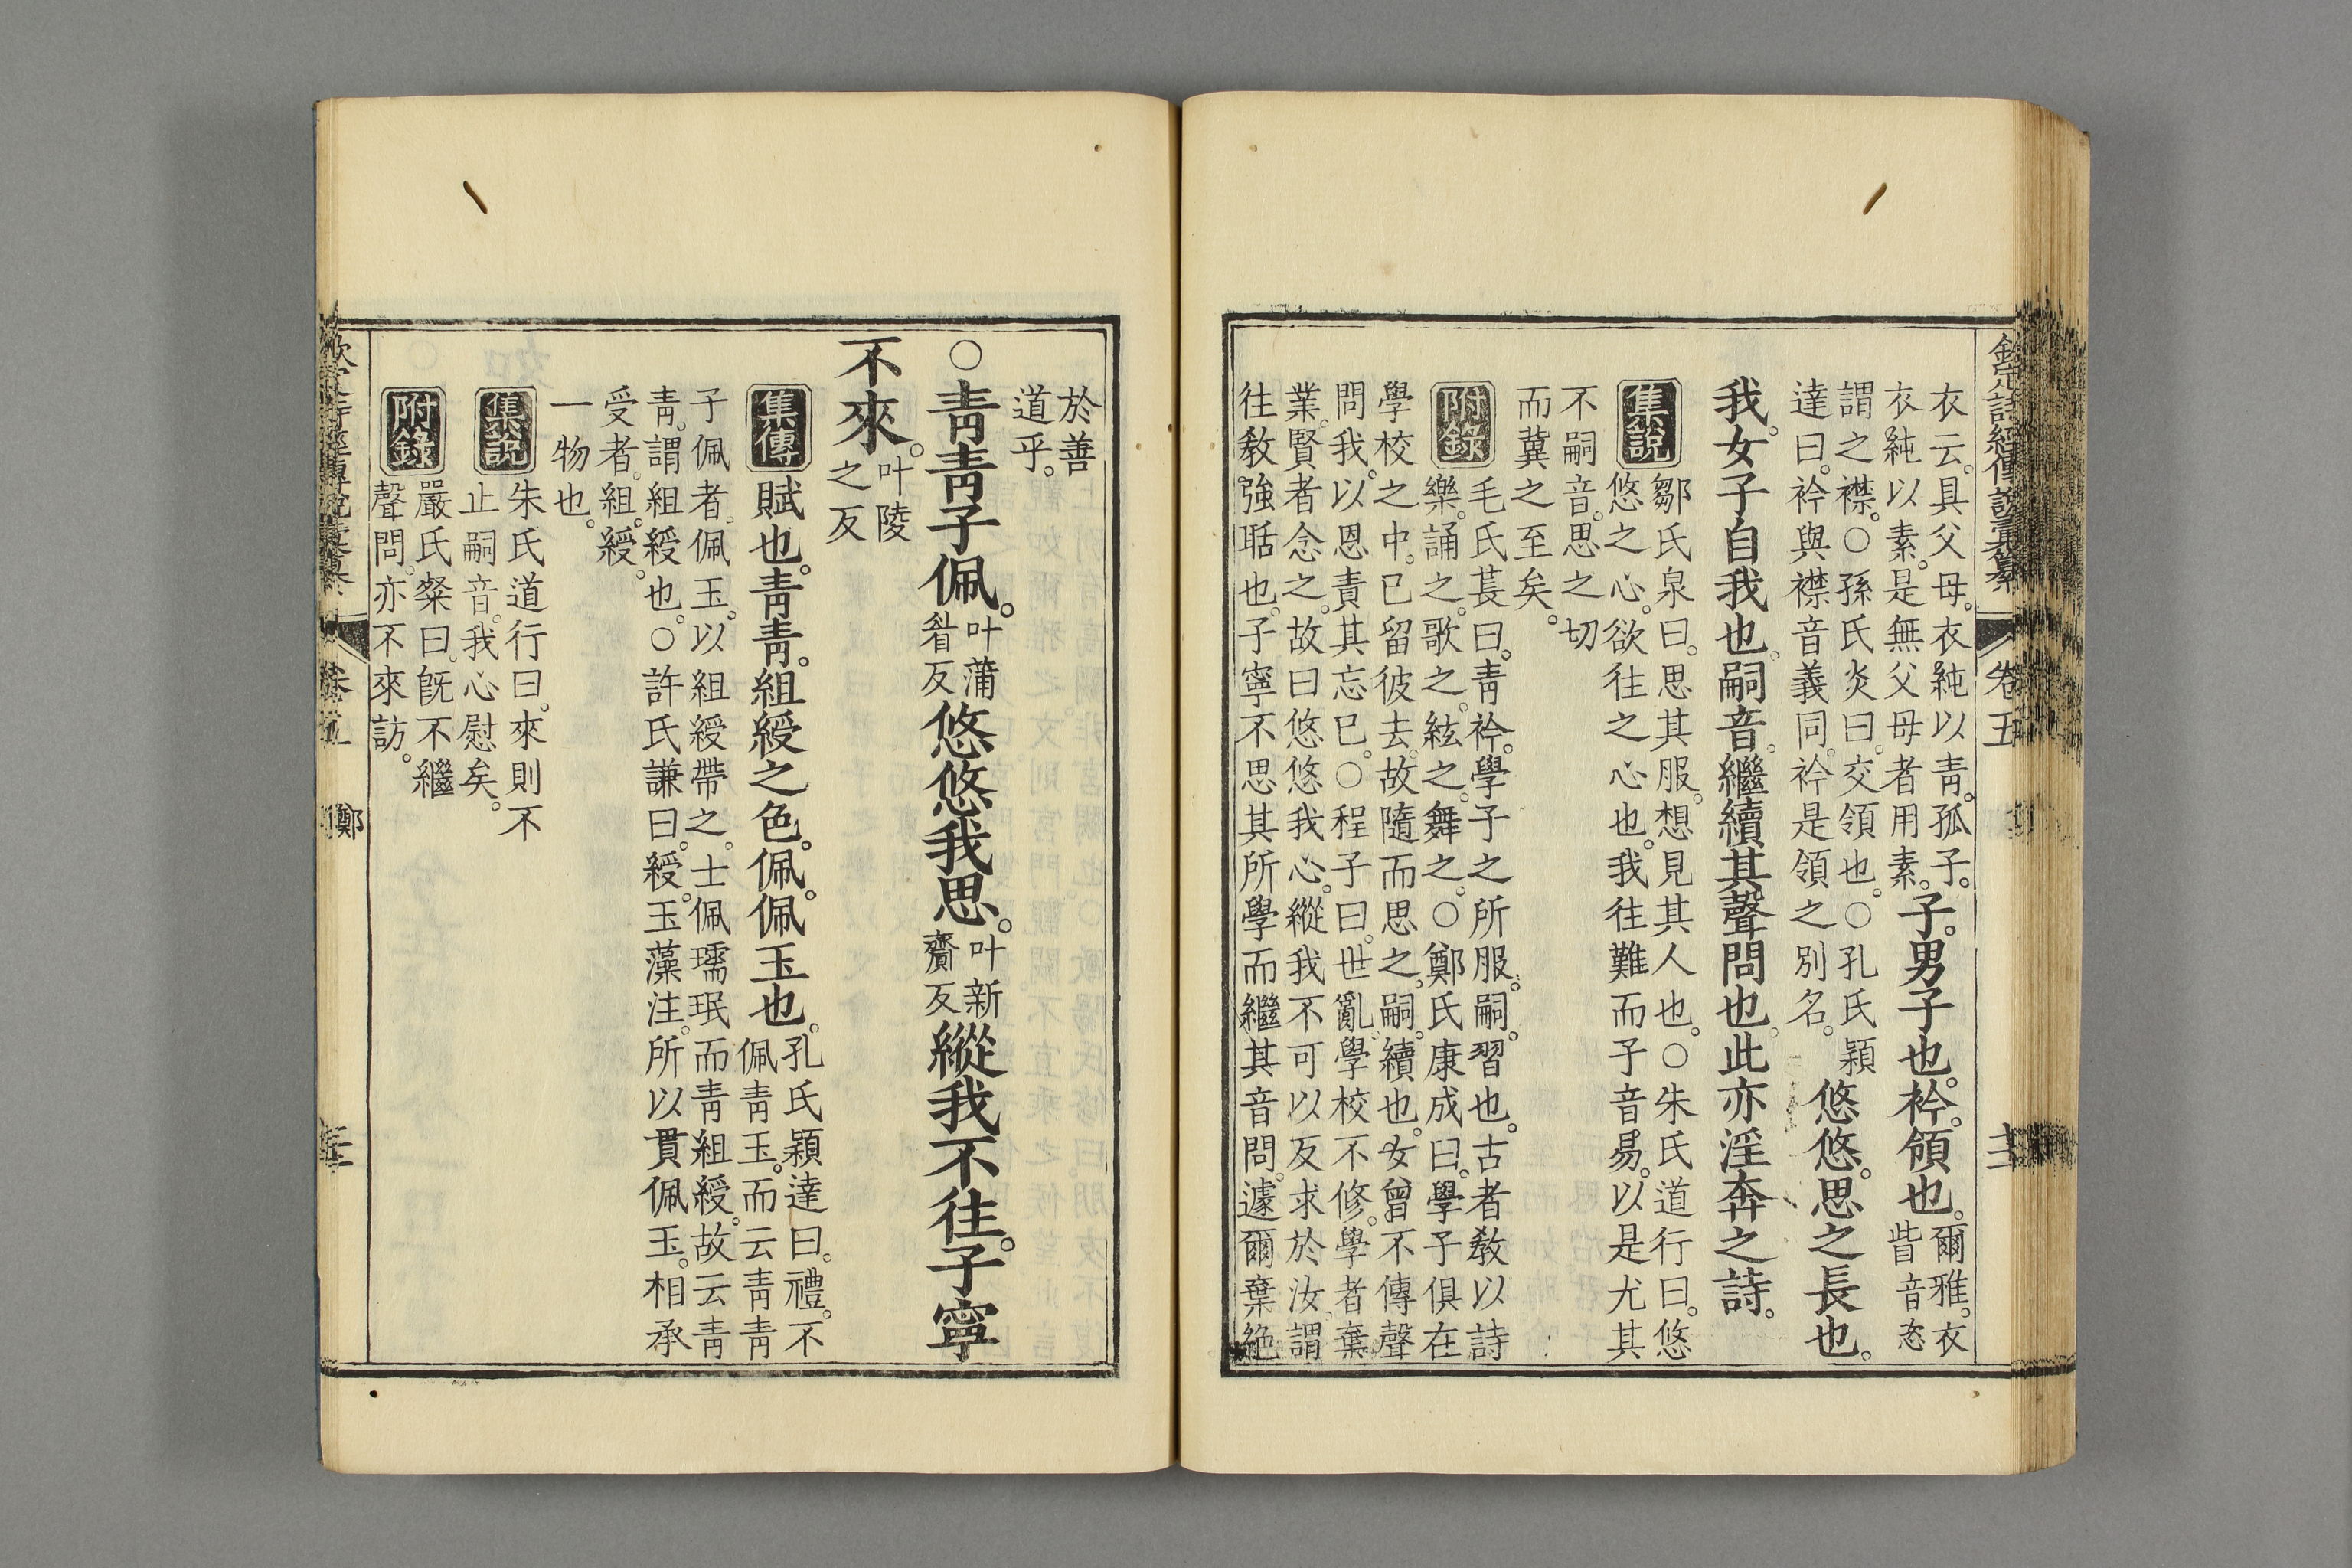 欽定詩經傳說彙纂 卷五
衣云。具父母。衣純以青。孤子。
衣純以素。是無父母者用素。
子。男子也。衿。領也。
爾雅。衣
眥音恣
謂之襟。○孫氏炎曰。交領也。○孔氏穎
達曰。衿與襟音義同。衿是領之別名。
悠悠。思之長也。
我。女子自我也。嗣音。繼續其聲問也。此亦淫奔之詩。
集說
鄒氏泉曰。思其服。想見其人也。○朱氏道行曰。悠
悠之心。欲往之心也。我往難而子音易。以是尤其
不嗣音。思之切
而冀之至矣。
附錄
毛氏萇曰。青衿。學子之所服。嗣。習也。古者教以詩
樂。誦之。歌之。絃之。舞之。○鄭氏康成曰。學子俱在
學校之中。已留彼去。故隨而思之。嗣。續也。女曾不傳聲
問我。以恩責其忘已。○程子曰。世亂。學校不修。學者棄
業。賢者念之。故曰悠悠我心。縱我不可以反求於汝。謂
往教強聒也。子寧不思其所學而繼其音問。遽爾棄絶
於善
道乎。
○青青子佩。
叶蒲
眥反
悠悠我思。
叶新
齎反
縱我不往。子寧
不來。
叶陵
之反
集傳
賦也。青青。組綬之色。佩。佩玉也。
孔氏穎達曰。禮。不
佩青玉。而云青青
子佩者。佩玉。以組綬帶之。士佩瓀珉而青組綬。故云青
青。謂組綬也。○許氏謙曰。綬。玉藻注。所以貫佩玉。相承
受者。組。綬。
一物也。
集說
朱氏道行曰。來則不
止嗣音。我心慰矣。
附錄
嚴氏粲曰。既不繼
聲問。亦不來訪。
卷五
鄭